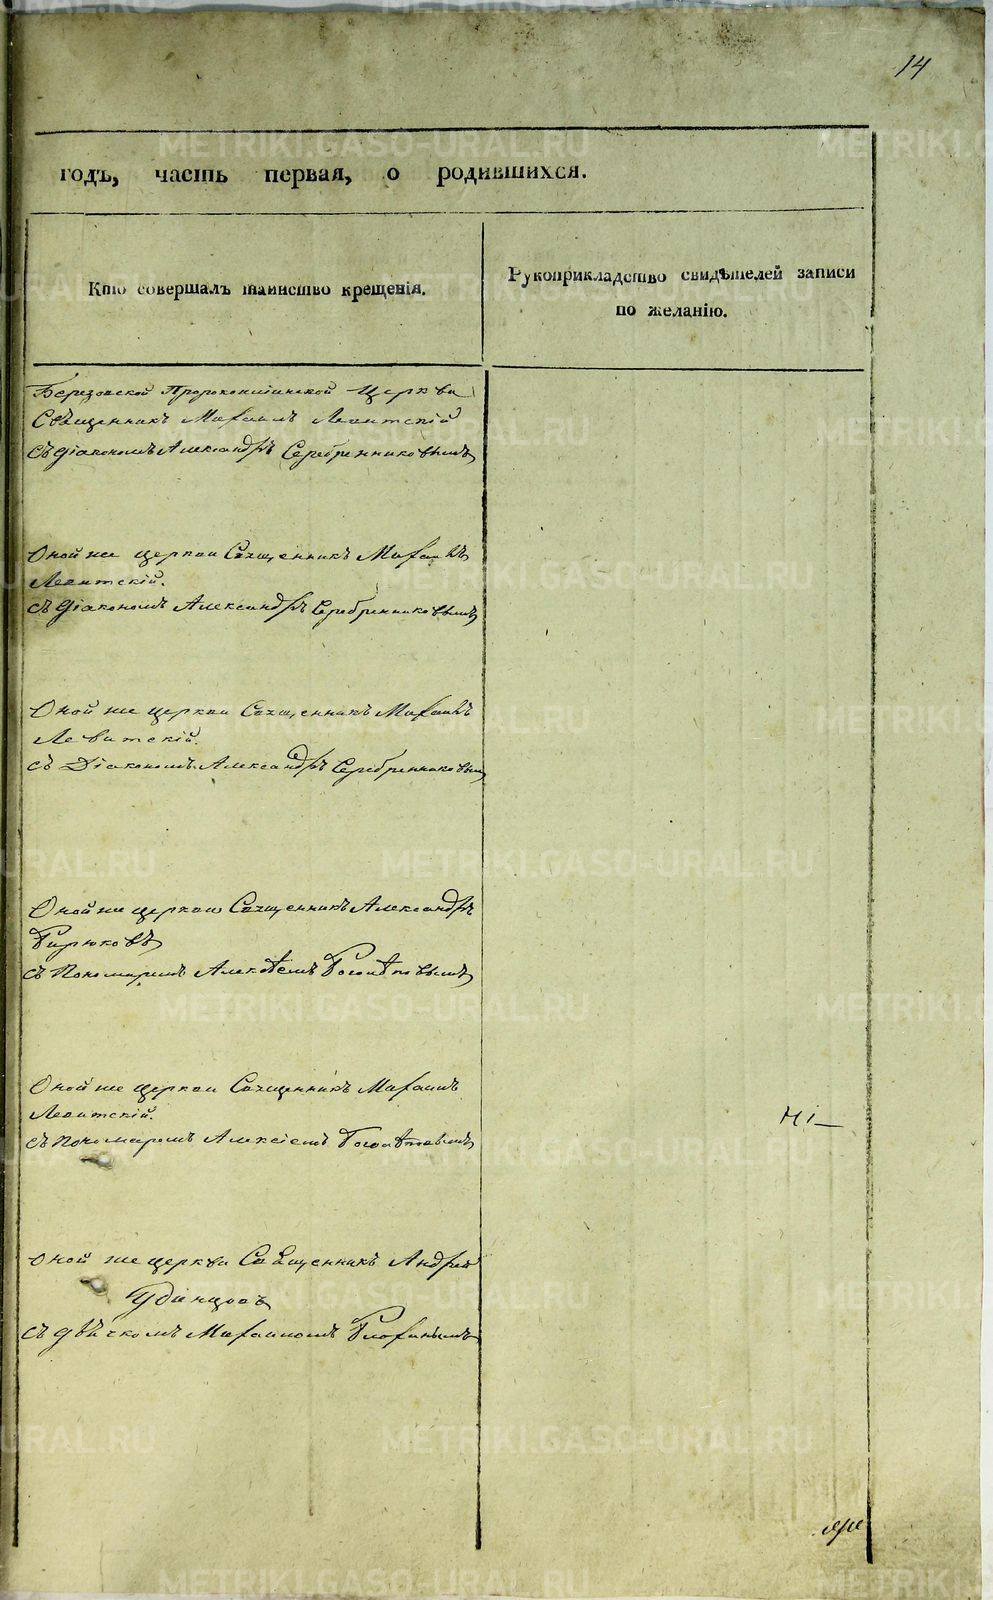 14
годъ, часть первая, о родившихся.
Кто совершалъ таинство крещенія.
Рукоприкладство свидѣтелей записи
по желанію.
Березовской Пророкоильинской Церкви
Священникъ Михаилъ Левитскій
съ діакономъ Александръ Серебренниковымъ
Оной же церкви Священникъ Михаилъ
Левитскій.
съ діакономъ Александръ Серебренниковымъ
Оной же церкви Священникъ Михаилъ
Левитскій.
съ Діакономъ Александръ Серебренниковым
Оной же церкви Священникъ Александръ
Бирюковъ
съ Пономаремъ Алексѣемъ
Оной же церкви Священникъ Михаилъ
Левитскій.
съ Пономаремъ Алексіемъ
Оной же церкви Священникъ Андрей
Удинцовъ
съ дьячкомъ Михаиломъ
METRIKI.GASO-URAL.RU